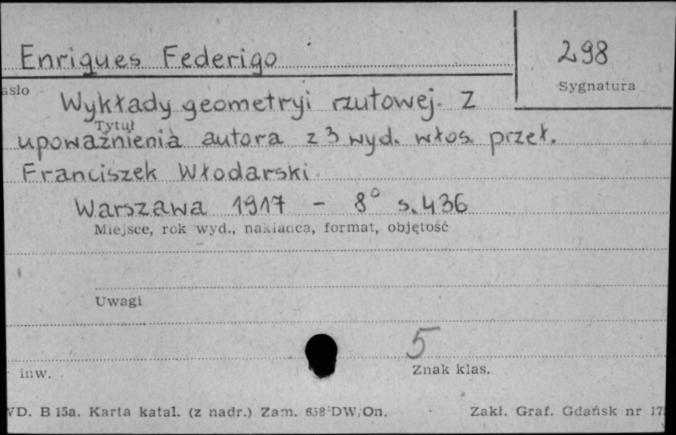 Enriques Federigo
298
asło
Sygnatura
Wykłady geometryi rzutowej. Z
Tytuł
upoważnienia autora z 3 wyd. włos. przeł.
Franciszek Włodarski.
Warszawa 1917 - 8° s. 436
Miejsce, rok wyd., nakładca, format, objętość
Uwagi
5
inw.
Znak klas.
VD. B 15a. Karta katal. (z nadr.) Zam. 658 DW/On.
Zakł. Graf. Gdańsk nr 17